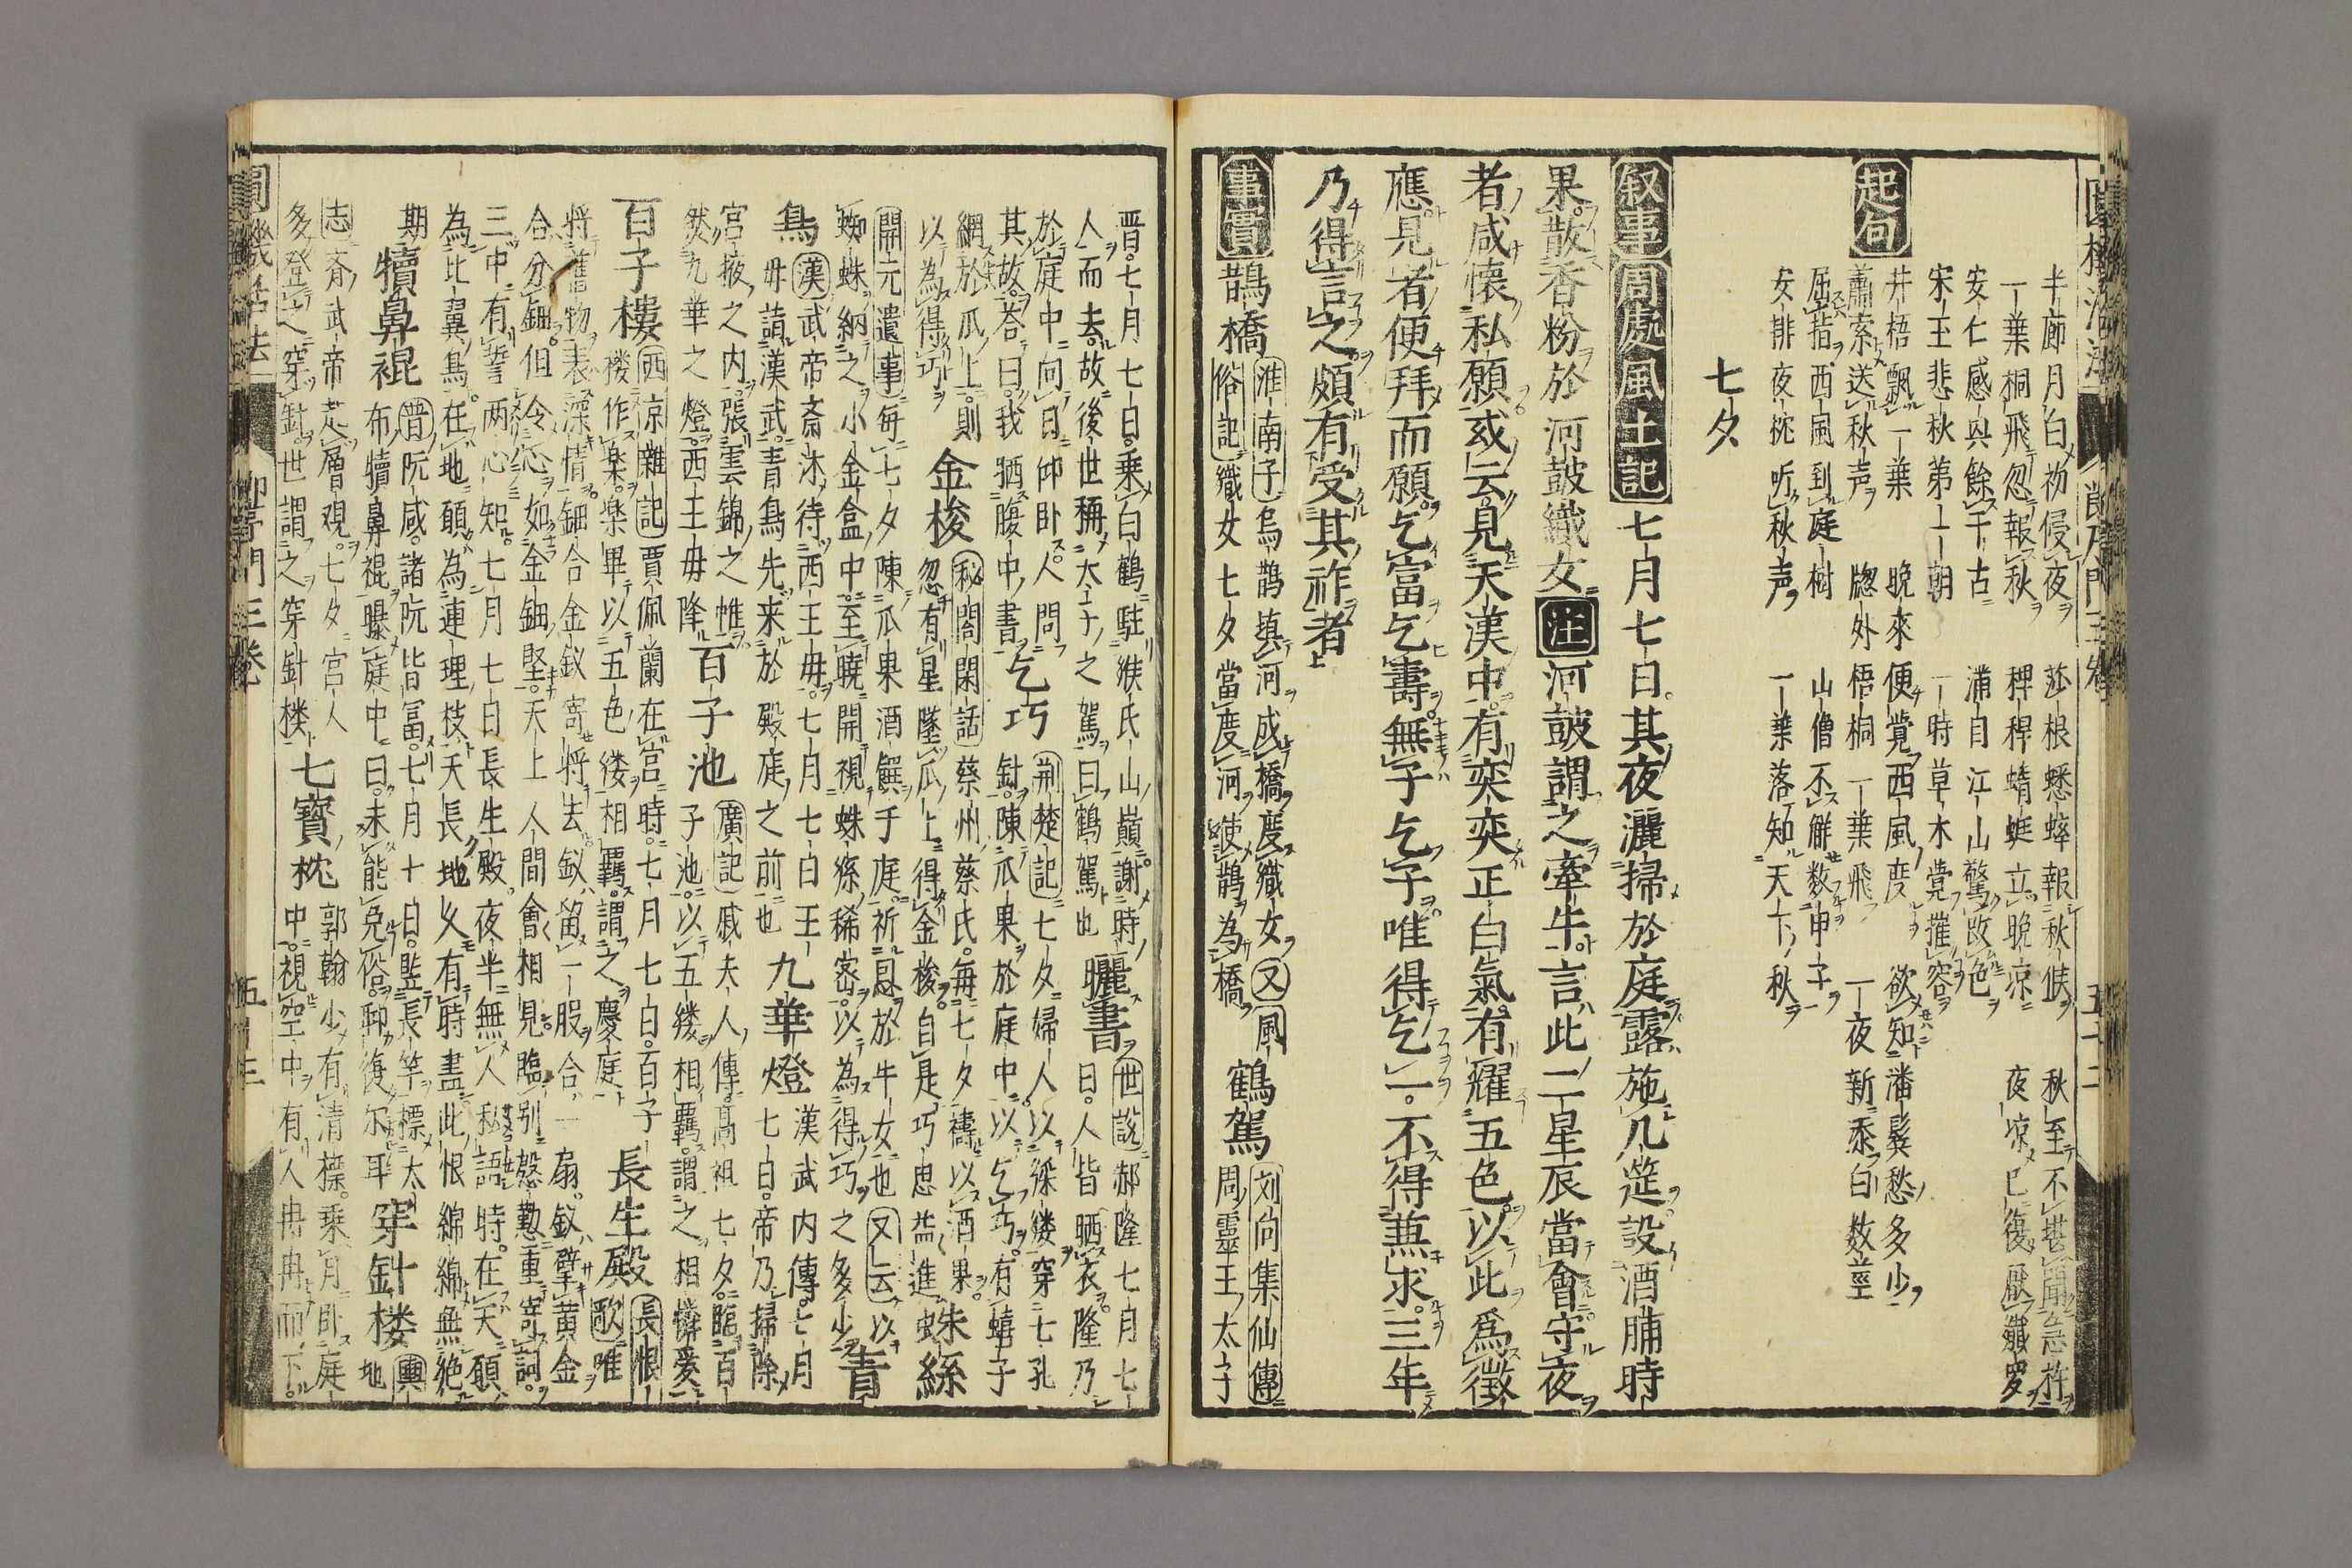 半廊月白初侵夜 莎根蟋蟀報秋候 秋至不堪聞急杵
一葉桐飛忽報秋 稗稗蜻蜓立晚凉 夜凉已復厭纖罗
安仁感與餘千古 滿目江山驚改色
宋玉悲秋第一朝 一時草木覚摧容
起句
井梧飄一葉 晩來便覚西風度 欲知潘鬂愁多少
蕭索送秋声 牎外梧桐一葉飛 一夜新添白数莖
屈指西風到庭樹 山僧不觧数甲子
安排夜枕听秋声 一葉落知天下秋
七夕
叙事 周處風土記 七月七日其夜灑掃於庭露施几筵設酒脯時
果散香粉於河皷織女 注 河皷謂之牽牛言此二星辰當會守夜
者咸懷私願或云見天漢中有奕奕正白氣有耀五色以此爲徵
應見者便拜而願乞富乞壽無子乞子唯得乞一不得兼求三年
乃得言之頗有受其祚者
事實 鵲橋 淮南子 烏鵲填河成橋度織女 又 風
俗記 織女七夕當度河使鵲為橋 鶴駕 刘向集仙傳
周靈王太子
晋七月七日乘白鶴駐緱氏山巔謝時
人而去故後世稱太子之駕曰鶴駕也 曬書 世說 郝隆七月七
日人皆晒衣隆乃
於庭中向日仰卧人問
其故荅曰我晒腹中書 乞巧 荊楚記 七夕婦人以綵縷穿七孔
針陳瓜果於庭中以乞巧有蟢子
網於瓜上則
以為得巧 金梭 秘閣閑話 蔡州蔡氏每七夕禱以酒果
忽有星墜瓜上得金梭自是巧思益進 蛛絲
開元遺事 每七夕陳瓜果酒饌于庭祈恩於牛女也 又云 以
蜘蛛納之小金盒中至曉開視蛛絲稀密以為得巧之多少 青
鳥 漢武帝斎沐待西王毋七月七日王
毋請漢武青鳥先来於殿庭之前也 九華燈 漢武内傳七月
七日帝乃掃除
宮掖之内張雲錦之帷
然九華之燈西王毋降 百子池 廣記 戚夫人傳高祖七夕臨百
子池以五縷相羈謂之相憐爱
百子樓 西凉雜記 賈佩蘭在宮時七月七日百子
楼作楽楽畢以五色縷相羈謂之慶庭 長生殿 長恨
歌 唯
将旧物表深情鈿合金釵寄将去釵留一股合一扇釵擘黄金
合分鈿但令心如金鈿堅天上人間會相見臨别慇懃重寄詞
三中有誓两心知七月七日長生殿夜半無人私語時在天願
為比翼鳥在地願為連理枝天長地乆有時盡此恨綿綿無绝
期 犢鼻裩 晋 阮咸諸阮皆冨七月十日盬長竿摽太
布犢鼻裩曝庭中曰未能免俗聊復尔耳 穿針楼 輿
地
志 斉武帝起層覌七夕宫人
多登之穿針世謂之穿針楼 七寳枕 郭翰少有清標乘月卧庭
中視空中有人冉冉而下
圓機活法 節序門三卷 五十二
圓機活法 節序門三卷 五十三